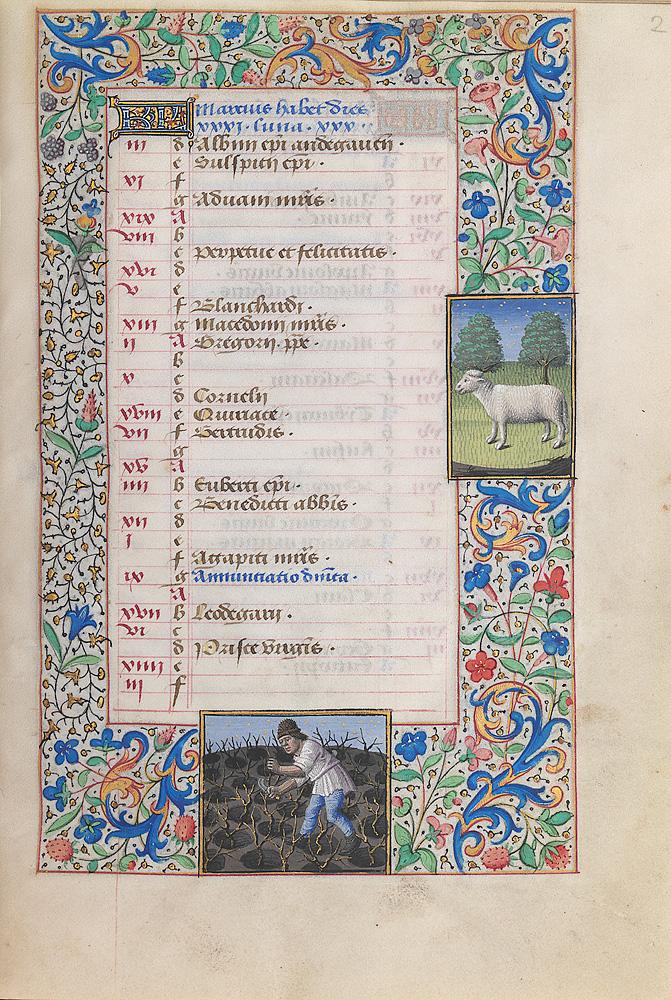 2
KL Marcius habet dies
xxxi · luna · xxx ·
iii d Albini epi andegaven
e Sulspitii epi ·
vi f
g Aduani mris ·
xix A
viii b
c Perpetue et felicitatis ·
xvi d
v e
f Blanchardi ·
xiii g Macedonii mris ·
ii A Gregorii ppe ·
b
x c
d Cornelii
xviii e Quiriace ·
vii f Gertrudis ·
g
xv A
iiii b Euberti epi ·
c Benedicti abbis ·
xii d
i e
f Agapiti mris ·
ix g Annunciatio dnica ·
A
xvii b Leodegarii ·
vi c
d Prisce virgis ·
xiiii e
iii f